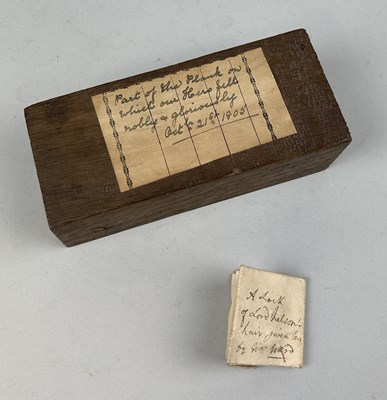 Part of the Plank on
which our Hero fell
nobly & gloriously
Oct 21st 1805
A Lock
of Lord Nelson's
hair given
by Ward